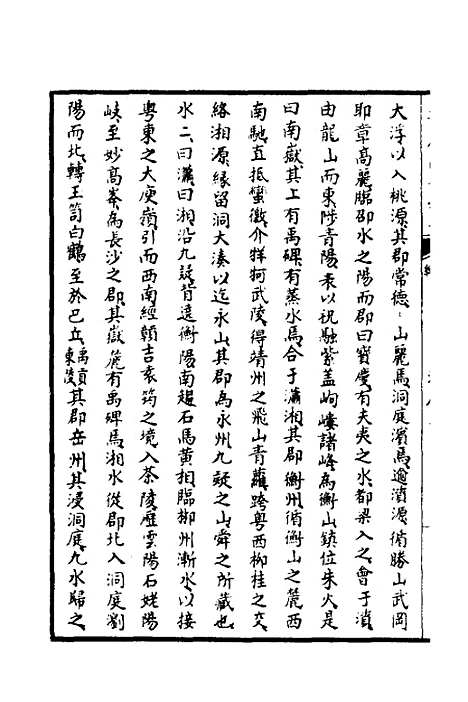 大浮以入桃源其郡常德德山麗焉洞庭濱焉遡濱源循勝山武岡
耶章高麗臨邵水之陽而郡曰寶慶有夫夷之水都梁入之會于濱
由龍山而東陟青陽袁以祝融紫蓋岣嶁諸峰為衡山鎮位朱火是
曰南嶽其上有禹碑有蒸水焉合于瀟湘其郡衡州循衡山之麓西
南馳直抵蠻徼介牂牁武陵得靖州之飛山青蘿跨粵西柳桂之交
絡湘源緣留洞大湊以迄永山其郡為永州九疑之山舜之所藏也
水二曰瀟曰湘沿九疑背遠衡陽南趨石馬黃相臨郴州漸水以接
粵東之大庾嶺引而西南經贛吉袁筠之境入茶陵歷雲陽石姥陽
岐至妙高峯為長沙之郡其嶽麓有禹碑焉湘水從郡北入洞庭瀏
陽而北轉玉笥白鶴至於巴丘禹貢東陵其郡岳州其浸洞庭九水歸之